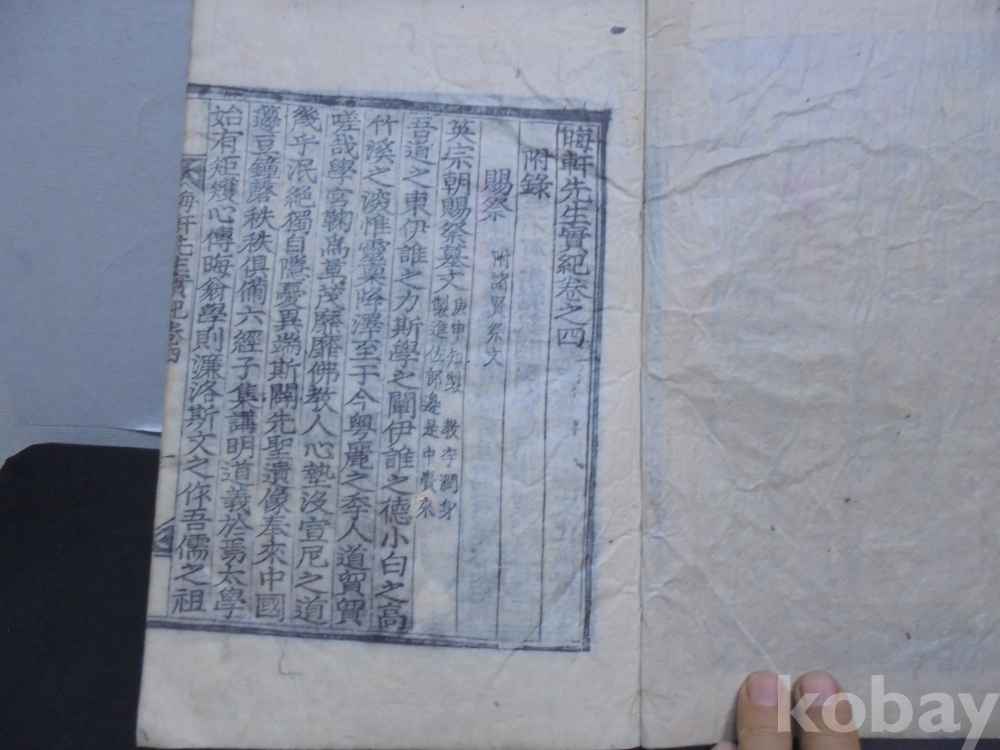 晦軒先生實紀卷之四
附錄
賜祭 附諸賢祭文
英宗朝賜祭墓文 庚申知製 教李潤身
製進佐郎邊是中賫來
吾道之東伊誰之力斯學之闡伊誰之德小白之高
竹溪之深惟靈稟降澤至于今粤麗之季人道貿貿
嗟哉學宮鞠爲茂靡靡佛教人心墊沒宣尼之道
幾乎泯絶獨自隱憂異端斯闢先聖遺像奉來中國
籩豆鐘磬秩秩俱備六經子集講明道義於焉太學
始有矩矱心傳晦翁學則濂洛斯文之作吾儒之祖
晦軒先生實紀卷四
一
kobay